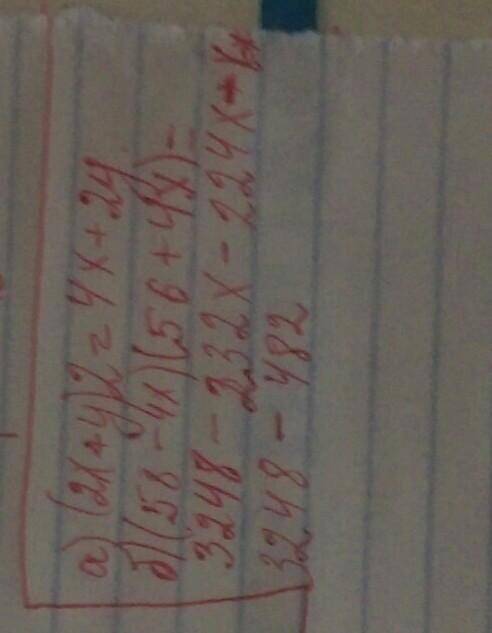 а) (2x+y)2=4x+2y
б) (58-4x)(56+4x)=
3248-232x-224x-
3248-482